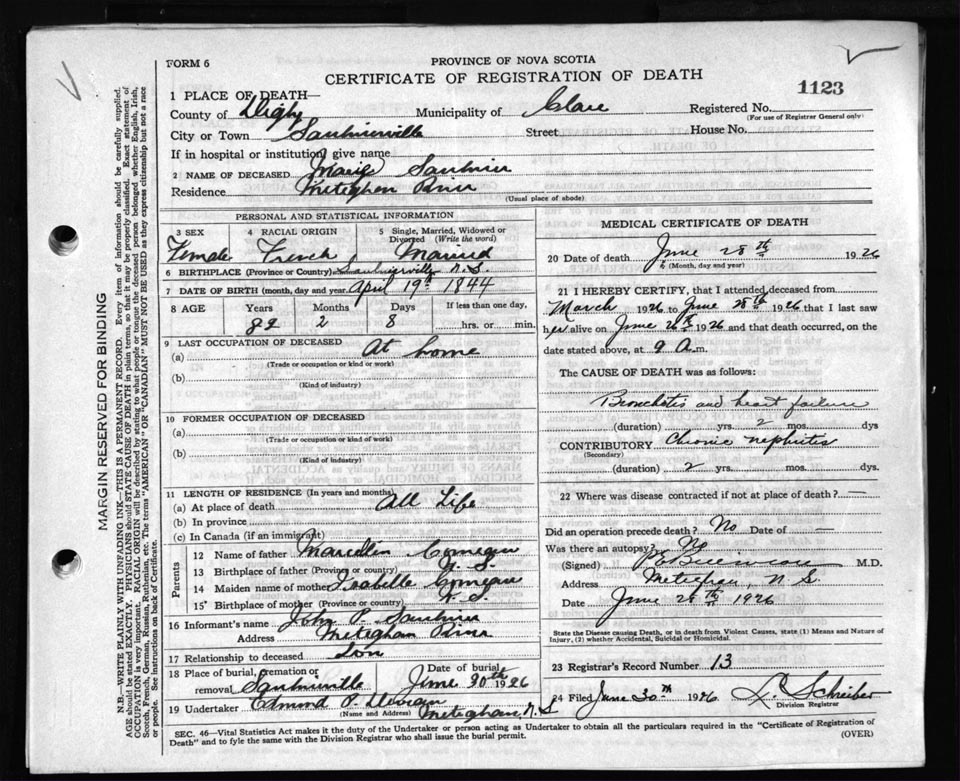 FORM 6
PROVINCE OF NOVA SCOTIA
CERTIFICATE OF REGISTRATION OF DEATH
1123
1 PLACE OF DEATH—
County of Digby Municipality of Clare Registered No.
(For use of Registrar General only)
City or Town Saulnierville Street House No.
If in hospital or institution, give name
2 NAME OF DECEASED Marie Saulnier
Residence Meteghan River
(Usual place of abode)
PERSONAL AND STATISTICAL INFORMATION
3 SEX 4 RACIAL ORIGIN 5 Single, Married, Widowed or Divorced (Write the word)
Female French Married
6 BIRTHPLACE (Province or Country) Saulnierville N.S.
7 DATE OF BIRTH (month, day and year) April 19th 1844
8 AGE Years Months Days If less than one day,
82 2 8 hrs. or min.
9 LAST OCCUPATION OF DECEASED
(a) At home
(Trade or occupation or kind or work)
(b)
(Kind of industry)
10 FORMER OCCUPATION OF DECEASED
(a)
(Trade or occupation or kind of work)
(b)
(Kind of industry)
11 LENGTH OF RESIDENCE (In years and months)
(a) At place of death All Life
(b) In province
(c) In Canada (if an immigrant)
Parents
12 Name of father Marcellin Comeau
13 Birthplace of father (Province or country) N. S.
14 Maiden name of mother Isabelle Comeau
15 Birthplace of mother (Province or country) N. S.
16 Informant's name John P. Saulnier
Address Meteghan River
17 Relationship to deceased Son
18 Place of burial, cremation or removal Saulnierville Date of burial June 30th 1926
19 Undertaker Edmund P.
(Name and Address) Meteghan, N. S.
MEDICAL CERTIFICATE OF DEATH
20 Date of death June 28th 1926
(Month, day and year)
21 I HEREBY CERTIFY, that I attended deceased from
March 1926 to June 28th 1926 that I last saw
her alive on June 26th 1926 and that death occurred, on the
date stated above, at 9 A.m.
The CAUSE OF DEATH was as follows:
Bronchitis and heart failure
(duration) yrs. 2 mos. dys
CONTRIBUTORY Chronic nephritis
(Secondary)
(duration) 2 yrs. mos. dys.
22 Where was disease contracted if not at place of death? —
Did an operation precede death? No Date of —
Was there an autopsy? No
(Signed) M.D.
Address Meteghan, N S.
Date June 28th 1926
State the Disease causing Death, or in death from Violent Causes, state (1) Means and Nature of
Injury, (2) whether Accidental, Suicidal or Homicidal.
23 Registrar's Record Number 13
24 Filed June 30th 1926 Schreiber
Division Registrar
SEC. 46—Vital Statistics Act makes it the duty of the Undertaker or person acting as Undertaker to obtain all the particulars required in the "Certificate of Registration of
Death" and to fyle the same with the Division Registrar who shall issue the burial permit. (OVER)
MARGIN RESERVED FOR BINDING
N.B.—WRITE PLAINLY WITH UNFADING INK—THIS IS A PERMANENT RECORD. Every item of information should be carefully supplied.
AGE should be stated EXACTLY. PHYSICIANS should STATE CAUSE OF DEATH in plain terms, so that it may be properly classified. Exact statement of
OCCUPATION is very important. RACIAL ORIGIN will be described by stating to what people or tongue the deceased person belonged whether English, Irish,
Scotch, French, German, Russian, Ruthenian, etc. The terms "AMERICAN" or "CANADIAN" MUST NOT BE USED as they express citizenship but not a race
or people. See instructions on back of Certificate.